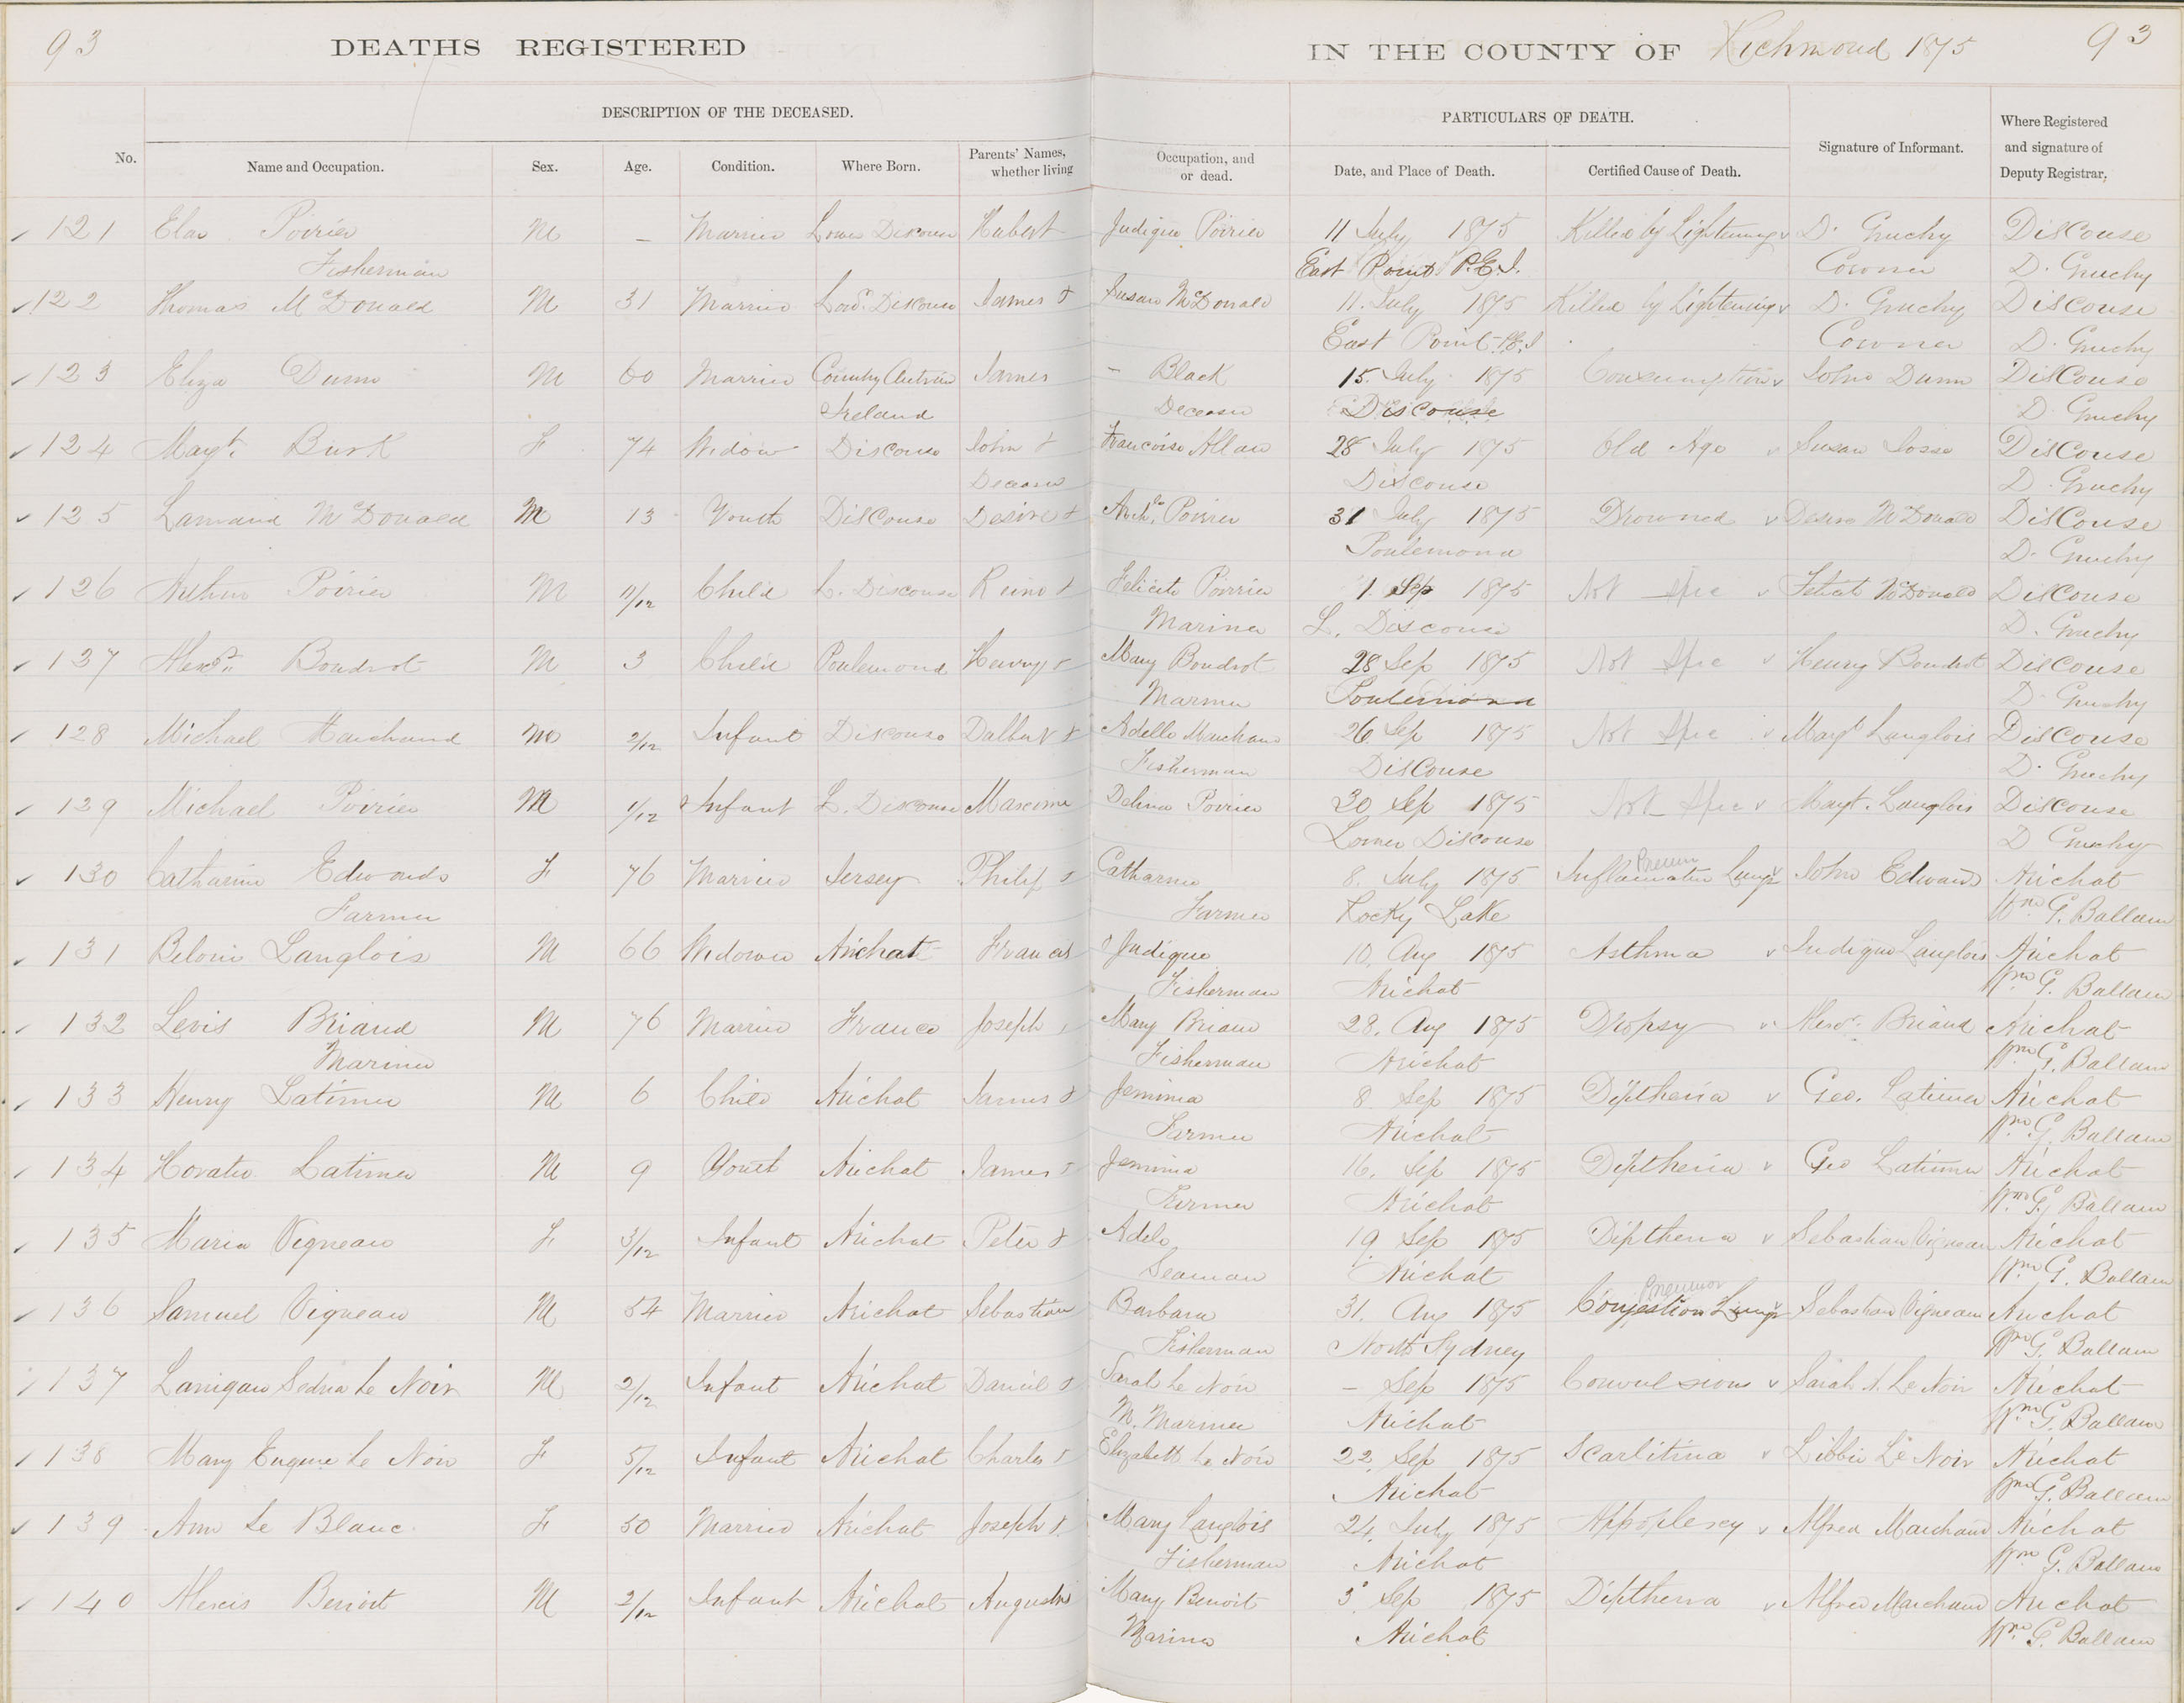 93
DEATHS REGISTERED
IN THE COUNTY OF Richmond 1875
93
DESCRIPTION OF THE DECEASED.
PARTICULARS OF DEATH.
No.
Name and Occupation.
Sex.
Age.
Condition.
Where Born.
Parents' Names, whether living
Occupation, and or dead.
Date, and Place of Death.
Certified Cause of Death.
Signature of Informant.
Where Registered and signature of Deputy Registrar.
121 Poirier M – Married Lower Discouse Hubert Judique Poirier 11 July 1875 Killed by Lightening D. Gruchy DisCouse
Fisherman East Point P.E.I. Coroner D. Gruchy
122 Thomas McDonald M 31 Married Lowr. Discouse James & Susan McDonald 11 July 1875 Killed by Lightening D. Gruchy Discouse
East Point P.E.I Coroner D. Gruchy
123 Eliza Dunn M 60 Married County Antrim James – Black 15 July 1875 Consumption John Dunn DisCouse
Ireland Deceased Discouse D. Gruchy
124 Magt. Burk F 74 Widow Discouse John & Francoise Allan 28 July 1875 Old Age Susan DisCouse
Deceased Discouse D. Gruchy
125 McDonald M 13 Youth DisCouse Desire & Poirier 31 July 1875 Drowned Desire McDonald DisCouse
Poulemond D. Gruchy
126 Arthur Poirier M 11/12 Child L. Discouse & Felicite Poirrier 1 Sep 1875 Not Spec McDonald DisCouse
Mariner L. Discouse D. Gruchy
127 Alexr. Boudrot M 3 Child Poulemond Henry & Mary Boudrot 28 Sep 1875 Not Spec Henry Boudrot DisCouse
Mariner Poulemond D. Gruchy
128 Michael Marchand M 2/12 Infant Discouse Dalbert & Adelle Marchand 26 Sep 1875 Not Spec Magt Langlois DisCouse
Fisherman DisCouse D. Gruchy
129 Michael Poirier M 1/12 Infant L. Discouse Maxime Delina Poirier 30 Sep 1875 Not Spec Magt. Langlois Discouse
Lower Discouse D Gruchy
130 Catharine Edwards F 76 Married Jersey Philip & Catharine 8 July 1875 Inflamation Lungs Pneum John Edwards Arichat
Farmer Farmer Rocky Lake Wm G. Ballam
131 Beloni Langlois M 66 Widower Arichat Francis & Judique 10 Aug 1875 Asthma Judique Langlois Arichat
Fisherman Arichat Wm G. Ballam
132 Levis Briand M 76 Married France Joseph Mary Briand 28 Aug 1875 Dropsy Briand Arichat
Mariner Fisherman Arichat Wm G. Ballam
133 Henry Latimer M 6 Child Arichat James & Jemima 8 Sep 1875 Diptheria Geo. Latimer Arichat
Farmer Arichat Wm G. Ballam
134 Horatio Latimer M 9 Youth Arichat James & Jemima 16 Sep 1875 Diptheria Geo Latimer Arichat
Farmer Arichat Wm G. Ballam
135 Maria Vigneau F 3/12 Infant Arichat Peter & Adele 19 Sep 1875 Diptheria Sebastian Vigneau Arichat
Seaman Arichat Wm G. Ballam
136 Samuel Vigneau M 54 Married Arichat Sebastian Barbara 31 Aug 1875 Congestion Lungs Pneumon Sebastian Vigneau Arichat
Fisherman North Sydney Wm G. Ballam
137 Lanigan Sedna Le Noir M 2/12 Infant Arichat Daniel & Sarah Le Noir – Sep 1875 Convulsions Sarah A. Le Noir Arichat
M. Mariner Arichat Wm G. Ballam
138 Mary Eugene Le Noir F 5/12 Infant Arichat Charles & Elizabeth Le Noir 22 Sep 1875 Scarlitina Libbie Le Noir Arichat
Arichat Wm G. Ballam
139 Ann Le Blanc F 50 Married Arichat Joseph & Mary Langlois 24 July 1875 Appoplexy Alfred Marchand Arichat
Fisherman Arichat Wm G. Ballam
140 Alexis Benoit M 2/12 Infant Arichat Augustin Mary Benoit 3 Sep 1875 Diptheria Alfred Marchand Arichat
Mariner Arichat Wm G. Ballam